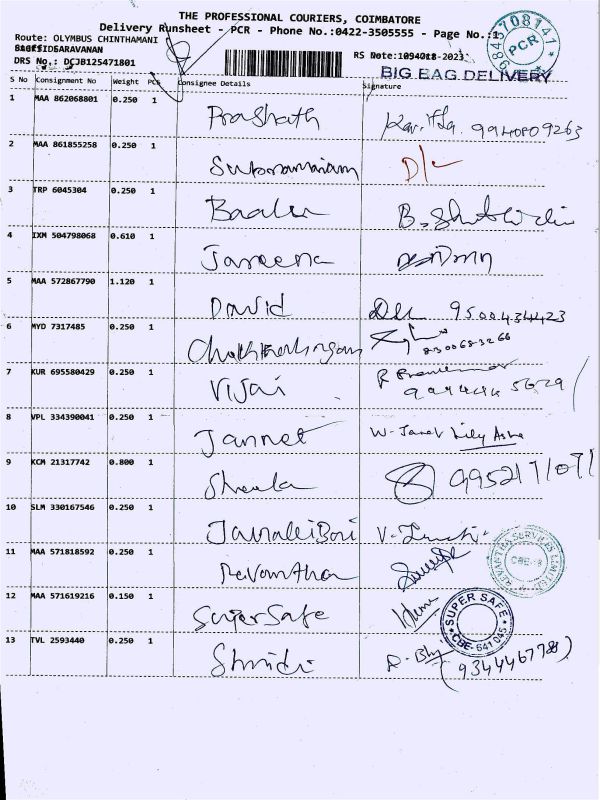 THE PROFESSIONAL COURIERS, COIMBATORE
Delivery Runsheet - PCR - Phone No.:0422-3505555 - Page No.:1
Route: OLYMBUS CHINTHAMANI
SARAVANAN
DRS No.: DCJB125471801
RS Date:
-2023
BIG BAG DELIVERY
9843708141
PCR
S No Consignment No Weight PCS Consignee Details Signature
1 MAA 862068801 0.250 1 Prashath Kavitha 9940809263
2 MAA 861855258 0.250 1 Subramaniam D/c
3 TRP 6045304 0.250 1 Baalu B.
4 IXM 504798068 0.610 1 Jareena
5 MAA 572867790 1.120 1 David 9500434423
6 MYD 7317485 0.250 1
7 KUR 695580429 0.250 1 Vijai R
8 VPL 334390041 0.250 1 Jannet W-Janet Lily Asha
9 KCM 21317742 0.800 1 Sheela 9952171071
10 SLM 330167546 0.250 1 V.
11 MAA 571818592 0.250 1 Revanthan
SERVICES LIMITED
CBE-18
12 MAA 571619216 0.150 1 SuperSafe
SUPER SAFE
CBE-641 045
13 TVL 2593440 0.250 1 Shridi (9344467788)